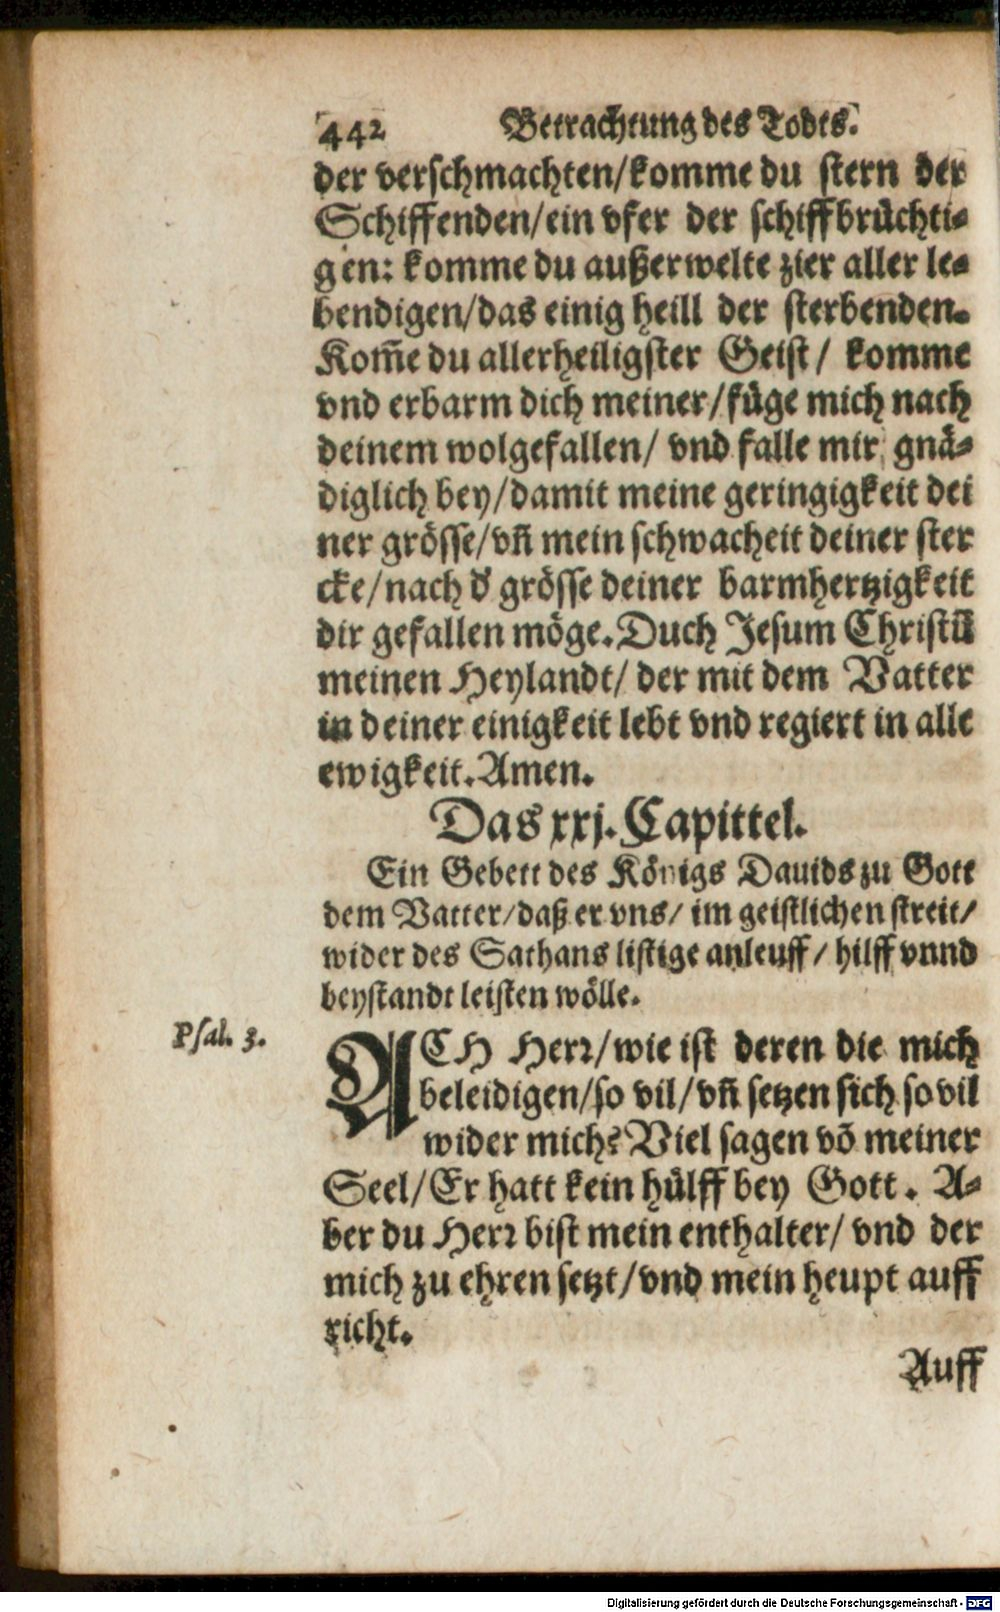 442 Betrachtung des Todts.
der verschmachten/komme du stern der
Schiffenden/ein vfer der schiffbrüchti-
gen: komme du außerwelte zier aller le-
bendigen/das einig heill der sterbenden.
Kom̃e du allerheiligster Geist/ komme
vnd erbarm dich meiner/füge mich nach
deinem wolgefallen/ vnd falle mir gnä-
diglich bey/damit meine geringigkeit dei
ner grösse/vñ mein schwacheit deiner ster
cke/nach d' grösse deiner barmhertzigkeit
dir gefallen möge. Duch Jesum Christū
meinen Heylandt/ der mit dem Vatter
in deiner einigkeit lebt vnd regiert in alle
ewigkeit. Amen.
Das xxj. Capittel.
Ein Gebett des Königs Dauids zu Gott
dem Vatter/daß er vns/ im geistlichen streit/
wider des Sathans listige anleuff/ hilff vnnd
beystandt leisten wölle.
Psal. 3.
ACH Herr/wie ist deren die mich
beleidigen/so vil/vñ setzen sich so vil
wider mich? Viel sagen võ meiner
Seel/Er hatt kein hülff bey Gott. A-
ber du Herr bist mein enthalter/ vnd der
mich zu ehren setzt/vnd mein heupt auff
richt.
Auff
Digitalisierung gefördert durch die Deutsche Forschungsgemeinschaft - DFG